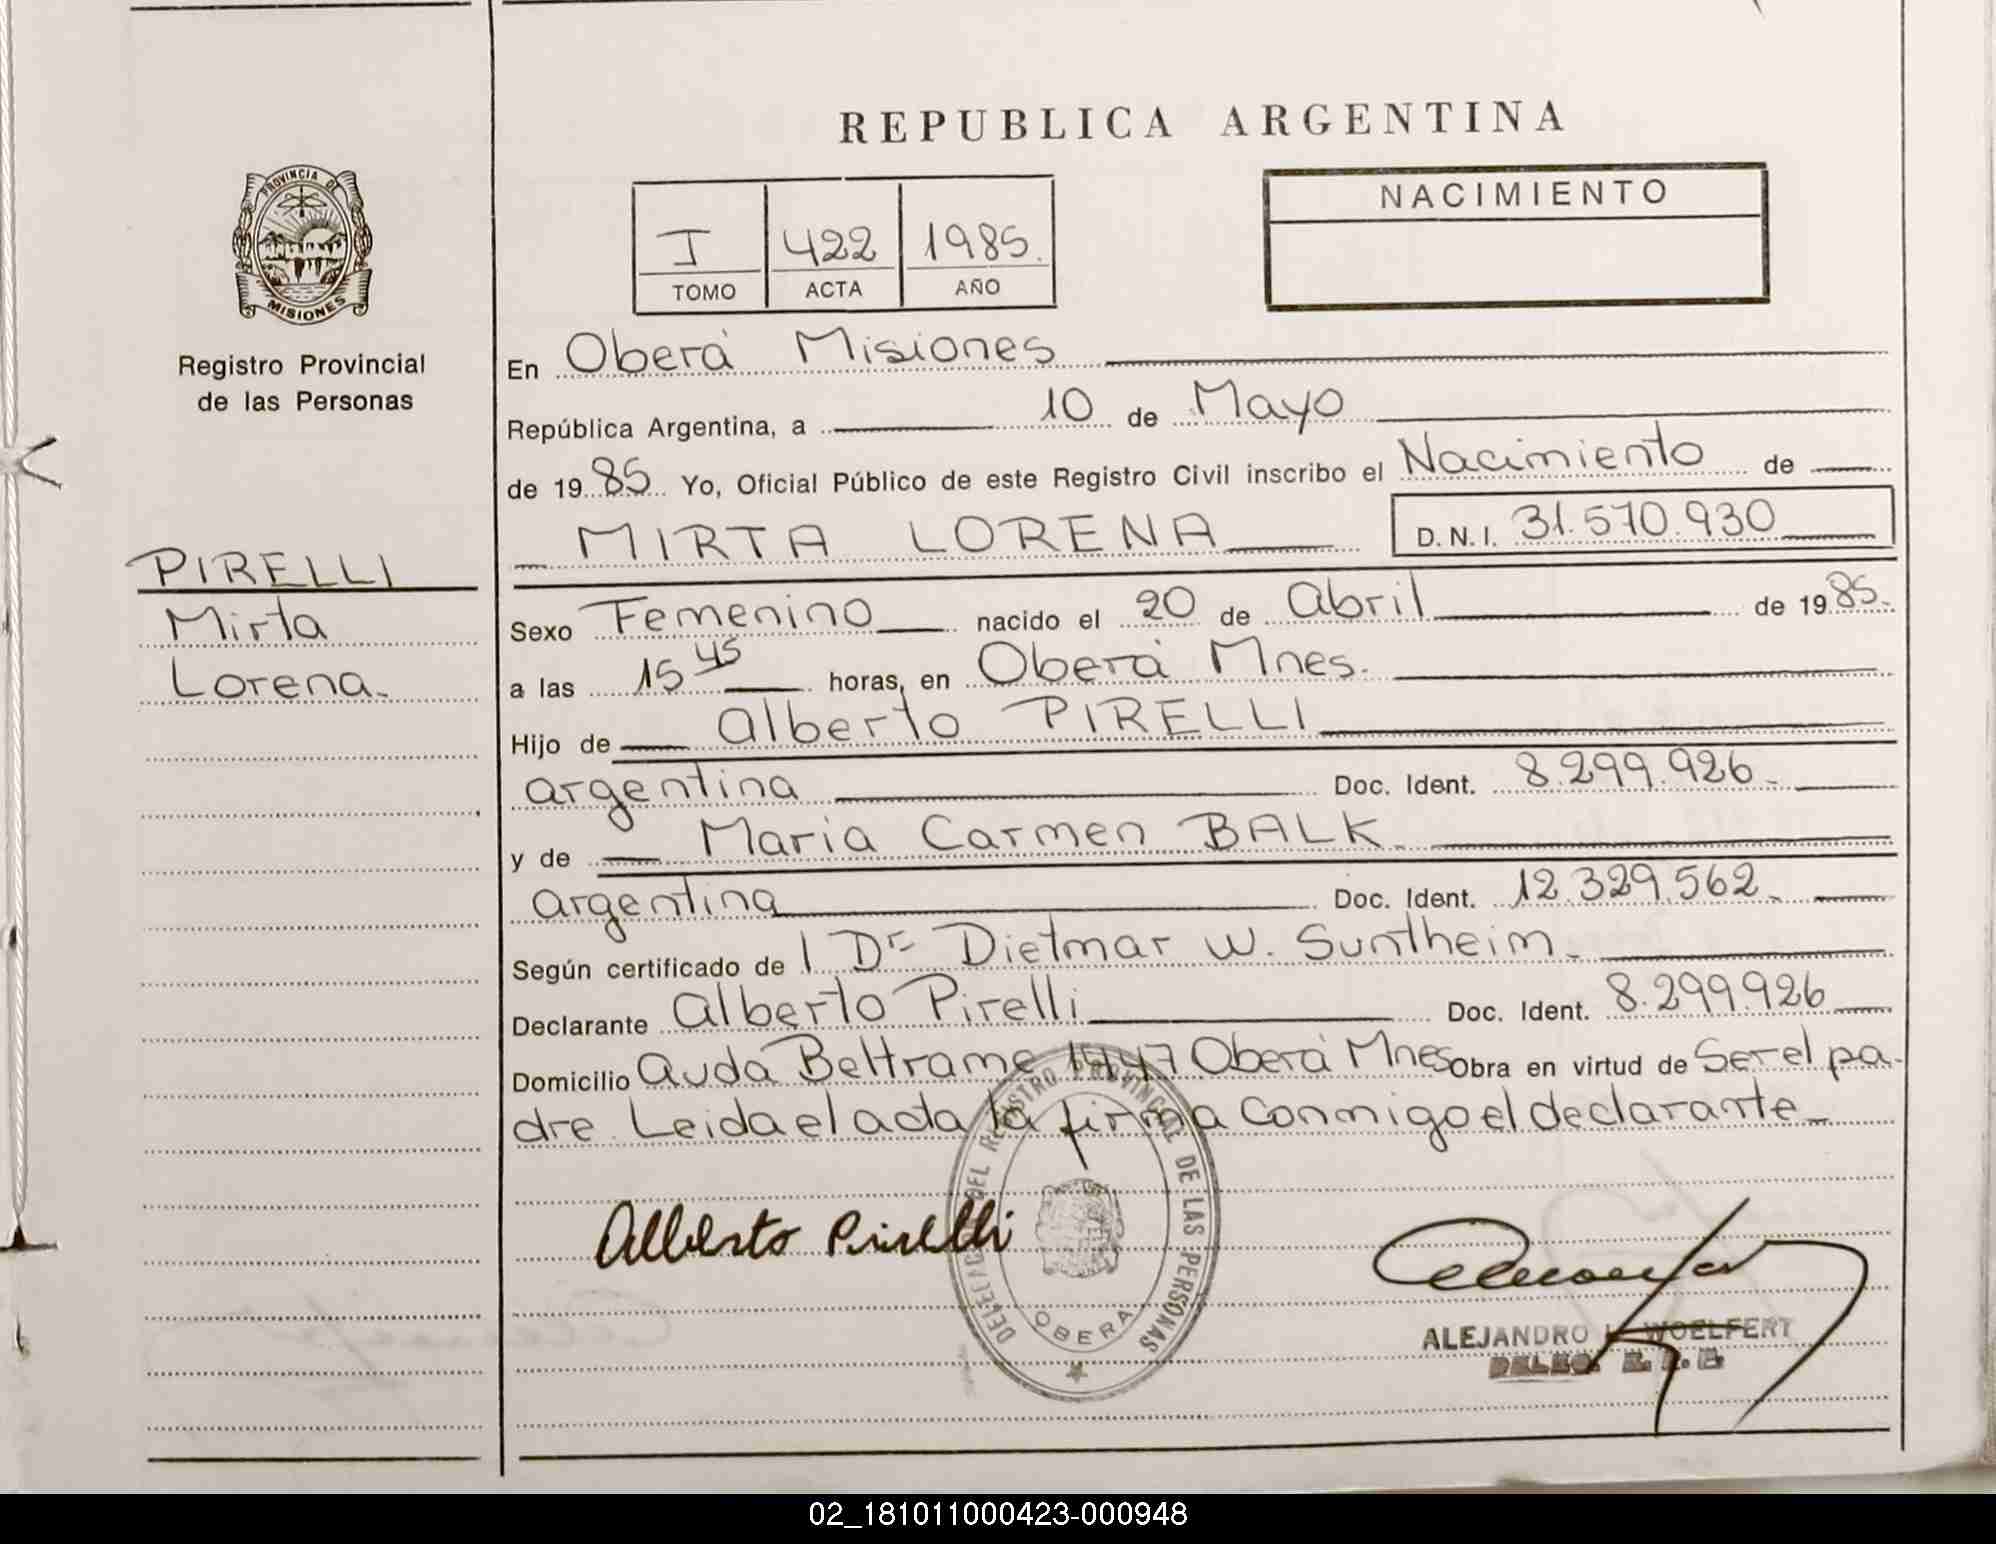 REPUBLICA ARGENTINA
PROVINCIA DE
MISIONES
Registro Provincial
de las Personas
I 422 1985.
TOMO ACTA AÑO
NACIMIENTO
En Oberá Misiones
República Argentina, a 10 de Mayo
de 1985 Yo, Oficial Público de este Registro Civil inscribo el Nacimiento de
MIRTA LORENA D.N.I. 31.570.930
PIRELLI
Mirta
Lorena.
Sexo Femenino nacido el 20 de abril de 1985.
a las 15 45 horas, en Oberá Mnes.
Hijo de Alberto PIRELLI
argentina Doc. Ident. 8.299.926
y de Maria Carmen BALK
argentina Doc. Ident. 12.329.562
Según certificado de l Dr Dietmar W. Suntheim
Declarante Alberto Pirelli Doc. Ident. 8.299.926
Domicilio Avda Beltrame 1447 Oberá Mnes Obra en virtud de Ser el pa-
dre Leida el acta la firma Conmigo el declarante
DELEGAC. DEL REGISTRO PROVINCIAL DE LAS PERSONAS
OBERA
Alberto Pirelli
ALEJANDRO WOELFERT
DELEG.
02_181011000423-000948